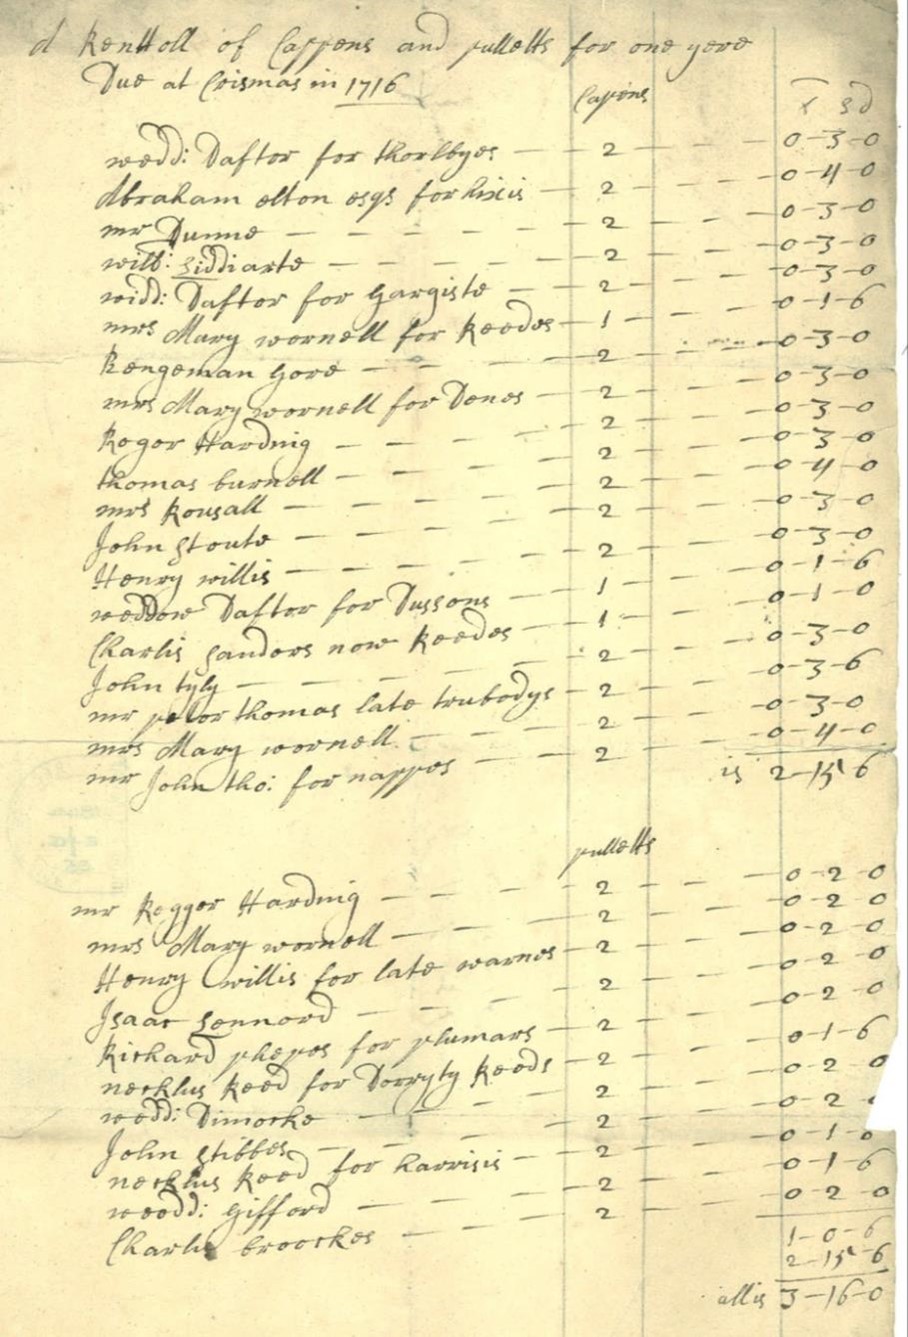 A Renttoll of Cappens and pulletts for one yere
Due at Crismas in 1716
Capens £ s d
wedd: Dafter for thorlbyes — 2 — 0-3-0
Abraham elton esqs for hixis — 2 — 0-4-0
mr Dunne — 2 — 0-3-0
will: Siddiarte — 2 — 0-3-0
widd: Dafter for Gargiste — 2 — 0-3-0
mrs Mary wornell for Reedes — 1 — 0-1-6
Rengeman Gore — 2 — 0-3-0
mrs Mary wornell for Denes — 2 — 0-3-0
Roger Harding — 2 — 0-3-0
thomas burnell — 2 — 0-3-0
mrs Rousall — 2 — 0-4-0
John Stoute — 2 — 0-3-0
Henry willis — 2 — 0-3-0
weddow Dafter for Dussons — 1 — 0-1-6
Charlis Sanders now Reedes — 1 — 0-1-0
John tyly — 2 — 0-3-0
mr peter thomas late trubodys — 2 — 0-3-6
mrs Mary wornell — 2 — 0-3-0
mr John tho: for nappes — 2 — 0-4-0
is 2-15-6
pulletts
mr Rogger Harding — 2 — 0-2-0
mrs Mary wornell — 2 — 0-2-0
Henry willis for late warnes — 2 — 0-2-0
Isaac Lennord — 2 — 0-2-0
Richard phepes for plumars — 2 — 0-2-0
necklus Reed for Dorryty Reeds — 2 — 0-1-6
wedd: Dimocke — 2 — 0-2-0
John Stibbes — 2 — 0-2-
necklus Reed for harrisis — 2 — 0-1-0
wedd: Gifford — 2 — 0-1-6
Charlis broockes — 2 — 0-2-0
1-0-6
2-15-6
allis 3-16-0